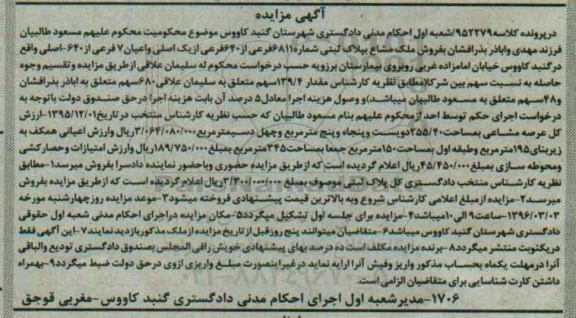 آگهی مزایده
در پرونده کلاسه ۹۵۲۲۷۹/شعبه اول احکام مدنی دادگستری شهرستان گنبد کاووس موضوع محکومیت محکوم علیهم مسعود طالبیان
فرزند مهدی و اباذر بذرافشان بفروش ملک مشاع پلاک ثبتی شماره ۶۸۱۱ فرعی از ۶۴۰ فرعی از یک اصلی و اعیان ۷ فرعی از ۶۴۰-اصلی واقع
در گنبد کاووس خیابان امامزاده غربی روبروی بیمارستان برزویه حسب درخواست محکوم له سلیمان علاقی از طریق مزایده و تقسیم وجوه
حاصله به نسبت سهم بین شرکا مطابق نظریه کارشناس مقدار ۱۳۹/۴ سهم متعلق به سلیمان علاقی ۶۸۰ سهم متعلق به اباذر بذرافشان
و ۴۸ سهم متعلق به مسعود طالبیان میباشد) و وصول هزینه اجرا معادل ۵ درصد آن بابت هزینه اجرا در حق صندوق دولت باتوجه به
درخواست اجرای حکم توسط احد از محکوم علیهم بنام مسعود طالبیان که حسب نظریه کارشناس منتخب در تاریخ ۱۳۹۵/۱۲/۰۱-ارزش
کل عرصه مشاعی بمساحت ۲۵۵/۴۰ دویست و پنجاه و پنج مترمربع و چهل دسیمترمربع ۳/۰۶۴/۰۸۰/۰۰۰ ریال وارزش اعیانی همکف به
زیربنای ۱۹۵ مترمربع وطبقه اول بمساحت ۱۵۰ مترمربع جمعا بمساحت ۳۴۵ مترمربع بمبلغ ۱۸۹/۷۵۰/۰۰۰ ریال وارزش امتیازات وحصارکشی
ومحوطه سازی بمبلغ ۴۵/۴۵۰/۰۰۰ ریال اعلام گردیده است که از طریق مزایده حضوری وباحضور نماینده دادسرا بفروش میرسد ۱-مطابق
نظریه کارشناس منتخب دادگستری کل پلاک ثبتی موصوف بمبلغ ۳/۳۰۰/۰۰۰/۰۰۰ ریال اعلام گردیده است که از طریق مزایده بفروش
میرسد ۲-مزایده از مبلغ اعلامی کارشناس شروع وبه بالاترین قیمت پیشنهادی فروخته میشود ۳-موعد مزایده روز چهارشنبه مورخه
۱۳۹۶/۰۳/۰۳-ساعت ۹ الی ۱۰ میباشد ۴-مزایده برای جلسه اول تشکیل میگردد ۵-مکان مزایده در اجرای احکام مدنی شعبه اول حقوقی
دادگستری شهرستان گنبد کاووس میباشد ۶-متقاضیان میتوانند پنج روز قبل از تاریخ مزایده از ملک مذکور بازدید نمایند ۷-این آگهی فقط
در یک نوبت منتشر میگردد ۸-برنده مزایده مکلف است ده درصد بهای پیشنهادی خویش را فی المجلس بصندوق دادگستری تودیع والباقی
آنرا در مهلت یکماه بحساب مذکور واریز وفیش آنرا ارایه نماید در غیر اینصورت مبلغ واریزی از وی در حق دولت ضبط میگردد ۹-بهمراه
داشتن کارت شناسایی برای متقاضیان الزامی است.
۱۷۰۶-مدیر شعبه اول اجرای احکام مدنی دادگستری گنبد کاووس-مغربی قوجق